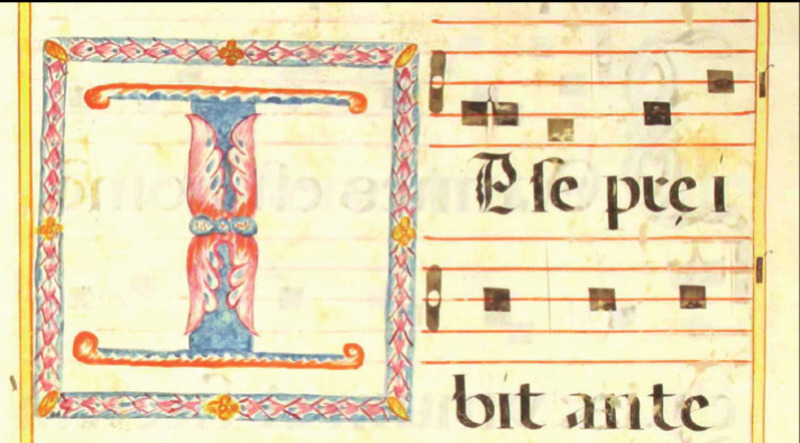 IPſe pręi
bit ante